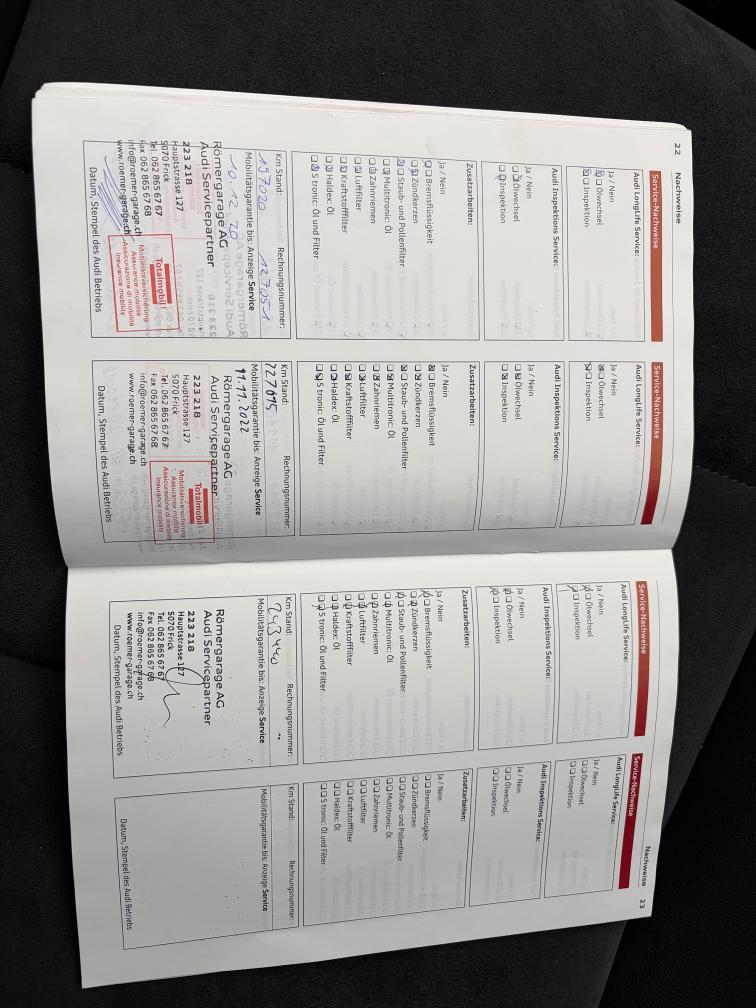 22
Nachweise
Service-Nachweise
Audi LongLife Service:
Ja / Nein
Ölwechsel
Inspektion
Audi Inspektions Service:
Ja / Nein
Ölwechsel
Inspektion
Zusatzarbeiten:
Ja / Nein
Bremsflüssigkeit
Zündkerzen
Staub- und Pollenfilter
Multitronic: Öl
Zahnriemen
Luftfilter
Kraftstofffilter
Haldex: Öl
S tronic: Öl und Filter
Km Stand: Rechnungsnummer:
197020 127051
Mobilitätsgarantie bis: Anzeige Service
10.12.20
Römergarage AG
Audi Servicepartner
223 218
Hauptstrasse 127
5070 Frick
Tel. 062 865 67 67
Fax 062 865 67 68
info@roemer-garage.ch
www.roemer-garage.ch
Totalmobil!
Mobilitätsversicherung
Assurance mobilité
Assicurazione di mobilità
Insurance mobility
Datum, Stempel des Audi Betriebs
Service-Nachweise
Audi LongLife Service:
Ja / Nein
Ölwechsel
Inspektion
Audi Inspektions Service:
Ja / Nein
Ölwechsel
Inspektion
Zusatzarbeiten:
Ja / Nein
Bremsflüssigkeit
Zündkerzen
Staub- und Pollenfilter
Multitronic: Öl
Zahnriemen
Luftfilter
Kraftstofffilter
Haldex: Öl
S tronic: Öl und Filter
Km Stand: Rechnungsnummer:
227615
Mobilitätsgarantie bis: Anzeige Service
11.11.2022
Römergarage AG
Audi Servicepartner
223 218
Hauptstrasse 127
5070 Frick
Tel. 062 865 67 67
Fax 062 865 67 68
info@roemer-garage.ch
www.roemer-garage.ch
Totalmobil!
Mobilitätsversicherung
Assurance mobilité
Assicurazione di mobilità
Insurance mobility
Datum, Stempel des Audi Betriebs
Service-Nachweise
Audi LongLife Service:
Ja / Nein
Ölwechsel
Inspektion
Audi Inspektions Service:
Ja / Nein
Ölwechsel
Inspektion
Zusatzarbeiten:
Ja / Nein
Bremsflüssigkeit
Zündkerzen
Staub- und Pollenfilter
Multitronic: Öl
Zahnriemen
Luftfilter
Kraftstofffilter
Haldex: Öl
S tronic: Öl und Filter
Km Stand: Rechnungsnummer:
243440
Mobilitätsgarantie bis: Anzeige Service
Römergarage AG
Audi Servicepartner
223 218
Hauptstrasse 127
5070 Frick
Tel. 062 865 67 67
Fax 062 865 67 68
info@roemer-garage.ch
www.roemer-garage.ch
Datum, Stempel des Audi Betriebs
Nachweise
23
Service-Nachweise
Audi LongLife Service:
Ja / Nein
Ölwechsel
Inspektion
Audi Inspektions Service:
Ja / Nein
Ölwechsel
Inspektion
Zusatzarbeiten:
Ja / Nein
Bremsflüssigkeit
Zündkerzen
Staub- und Pollenfilter
Multitronic: Öl
Zahnriemen
Luftfilter
Kraftstofffilter
Haldex: Öl
S tronic: Öl und Filter
Km Stand: Rechnungsnummer:
Mobilitätsgarantie bis: Anzeige Service
Datum, Stempel des Audi Betriebs